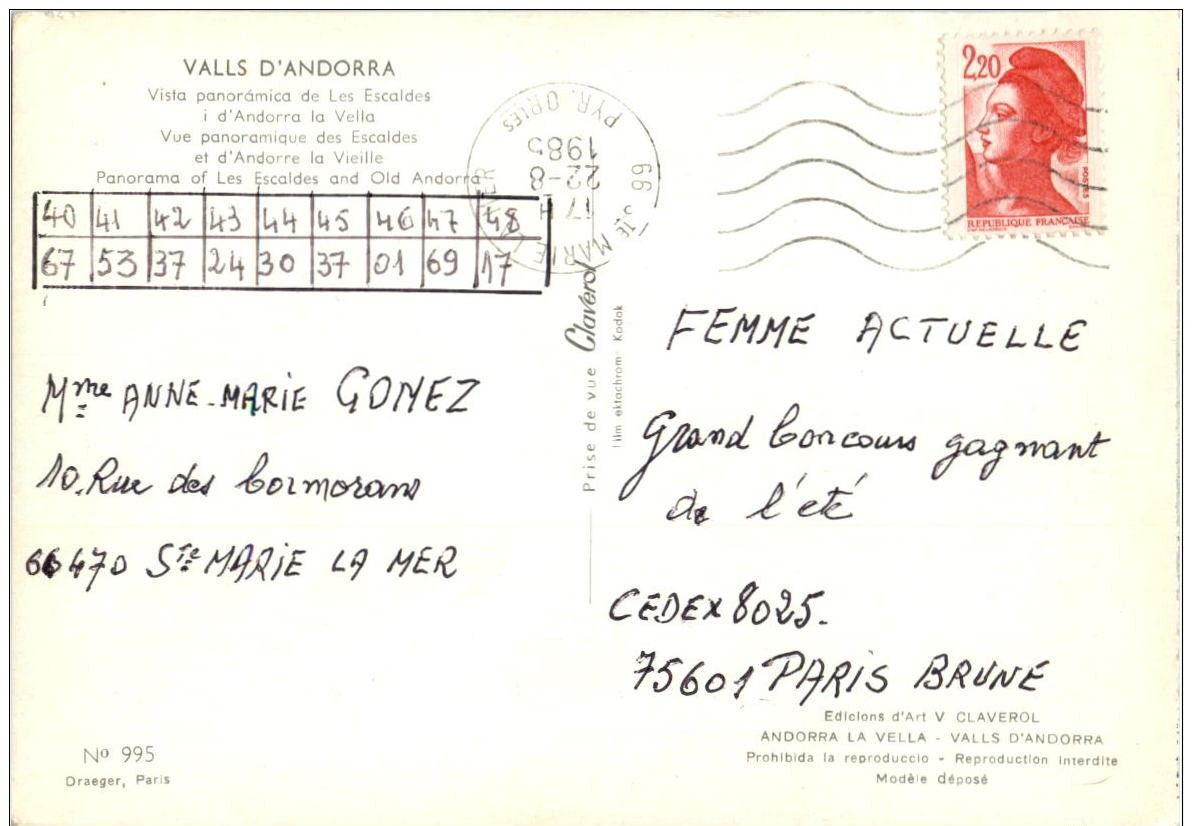 VALLS D'ANDORRA
Vista panorámica de Les Escaldes
i d'Andorra la Vella
Vue panoramique des Escaldes
et d'Andorre la Vieille
Panorama of Les Escaldes and Old Andorra
40 41 42 43 44 45 46 47 48
67 53 37 24 30 37 01 69 17
Mme ANNE-MARIE GOMEZ
10. Rue des Cormorans
66470 Ste MARIE LA MER
No 995
Draeger, Paris
Prise de vue Claverol
Film ektachrom Kodak
66 STE MARIE LA MER
PYR. ORLES
17 H
22-8
1985
2,20
POSTES
REPUBLIQUE FRANCAISE
FEMME ACTUELLE
Grand Concours gagnant
de l'été
CEDEX 8025.
75601 PARIS BRUNE
Edicions d'Art V CLAVEROL
ANDORRA LA VELLA - VALLS D'ANDORRA
Prohibida la reproduccio - Reproduction interdite
Modèle déposé